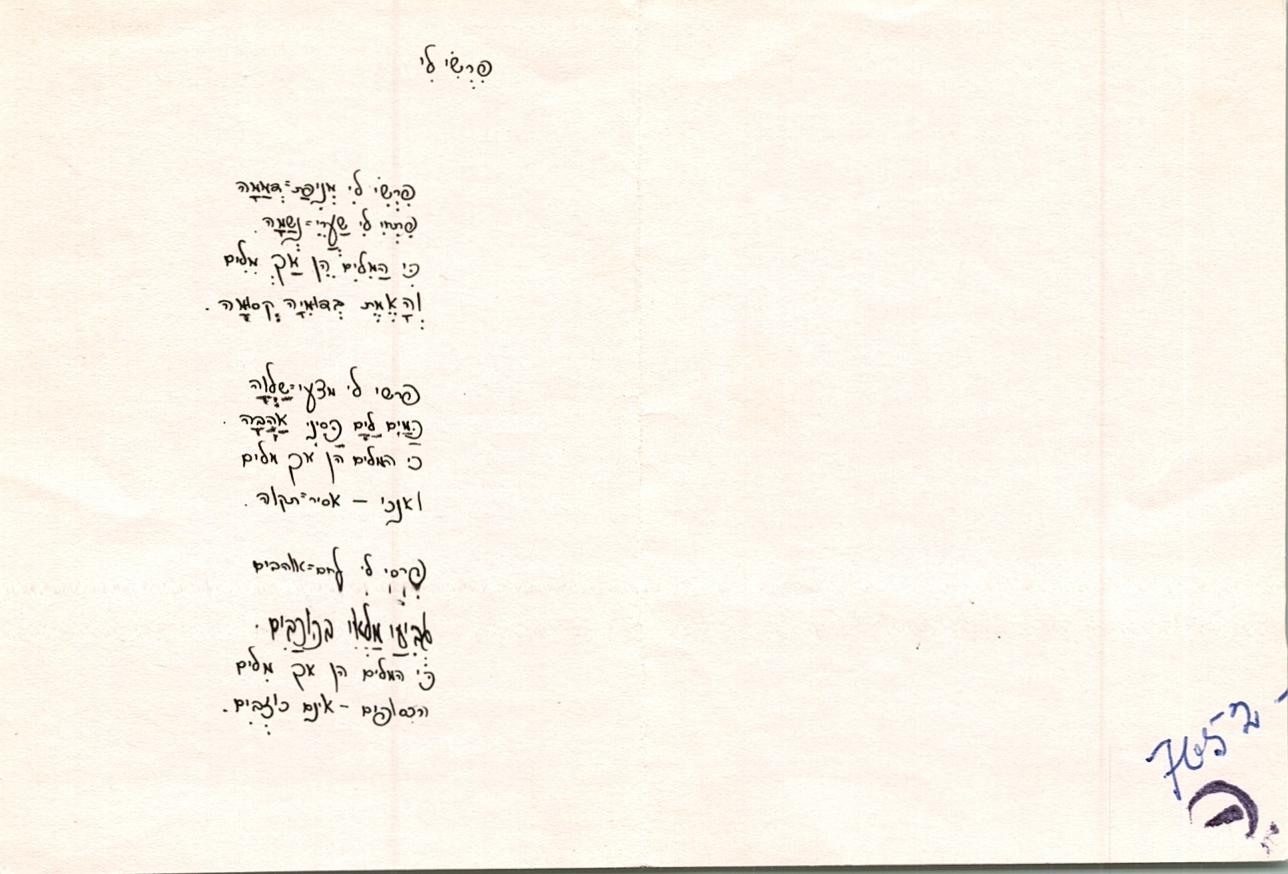 פרשי לי
פרשי לי מניפת=דממה
פתחי לי שערי=נשמה.
כי המלים הן אך מלים
והאמת בדומיה קסומה.
פרשי לי מצעי=שלוה
כמים לים כסיני אהבה.
כי המלים הן אך מלים
ואנכי – אסיר=תקוה.
פרסי לי לחם=אוהבים
גביעי מלאי בכוכבים.
כי המלים הן אך מלים
והכסופים – אינם כוזבים.